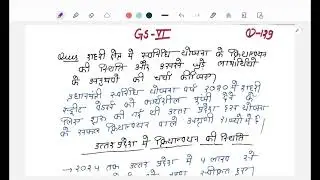 GS-VI
①-129
Ques शहरी क्षेत्र में स्वनिधि योजना के क्रियान्वयन
की स्थिति और इससे जुड़े लाभार्थियों
के अनुभवों की चर्चा कीजिए।
प्रधानमंत्री स्वनिधि योजना वर्ष 2020 में शहरी
स्ट्रीट वेंडर्स को कार्यशील पूंजी देने के
लिए शुरू की गई थी उत्तर प्रदेश इस योजना
के सफल क्रियान्वयन वाले अग्रणी राज्यों में है।
उत्तर प्रदेश में क्रियान्वयन की स्थिति
→ 2024 तक उत्तर प्रदेश में लाख से